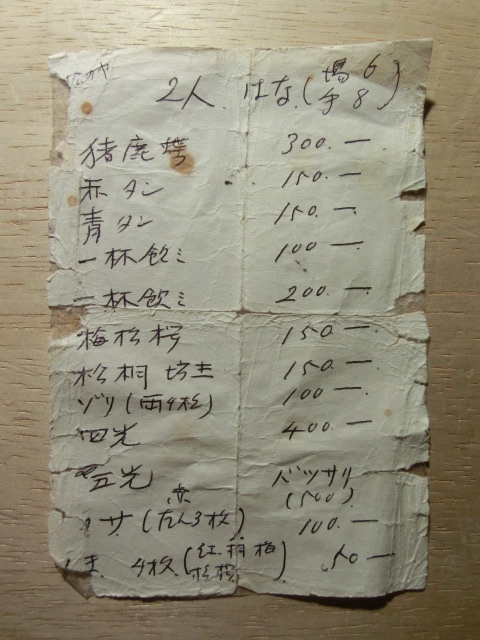 2人 はな(場6 手8)
猪鹿蝶 300.—
赤タン 150.—
青タン 150.—
一杯飲ミ 100 —
二杯飲ミ 200.—
梅松桜 150.—
松桐坊主 150.—
100 —
四光 400.—
五光 バツサリ
(700)
サ(たん3枚) 100.—
4枚(紅.桐梅 松桜) 50 —